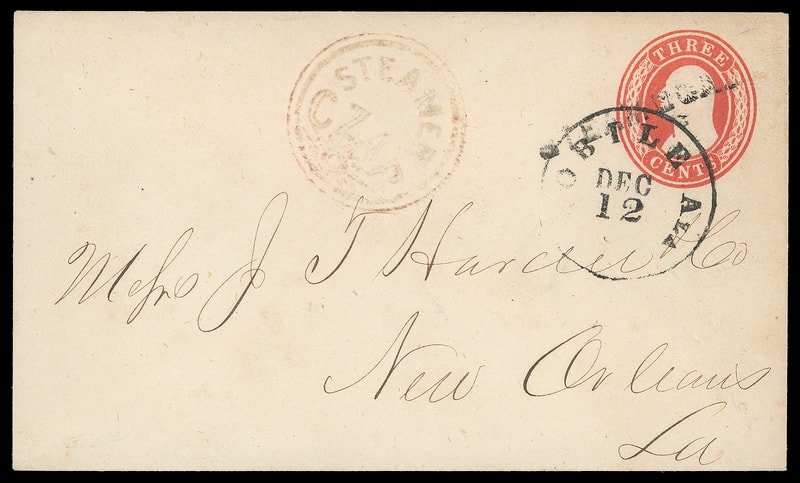 STEAMER
THREE
CENTS
MOBILE Ala
DEC
12
Messrs J T Hardie & Co
New Orleans
La